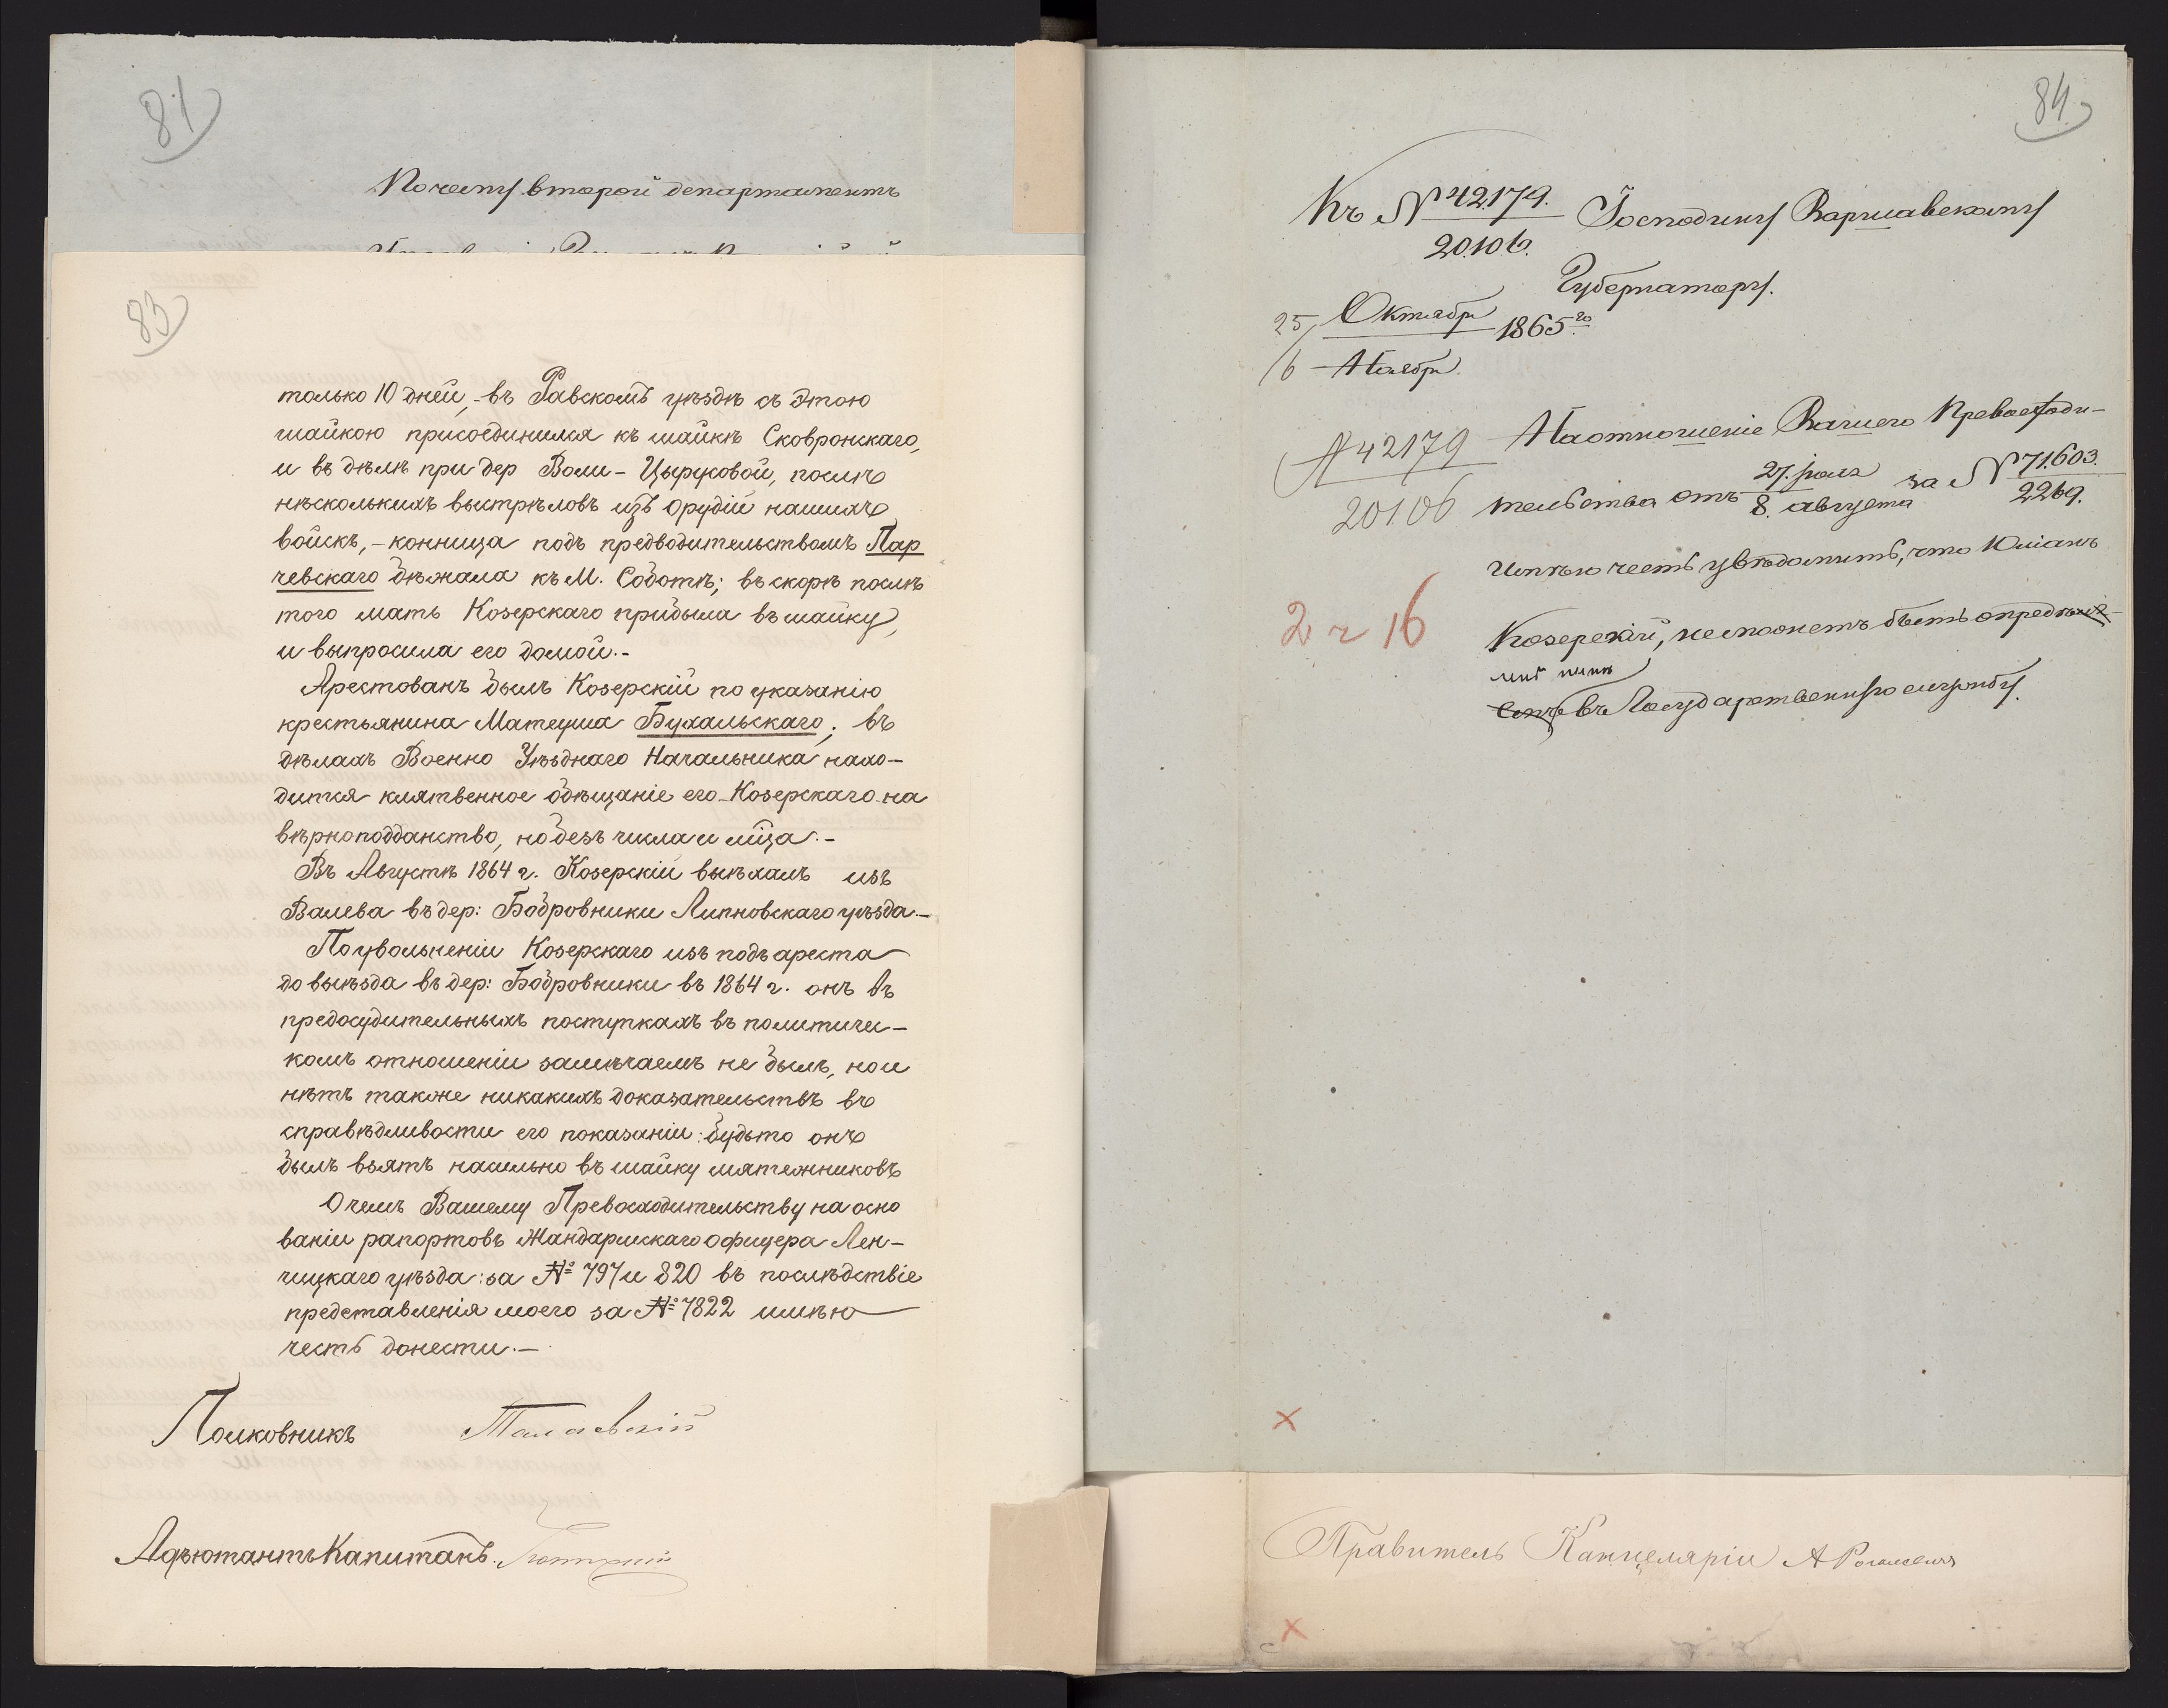 81
Почему второй департаментъ
83
только 10 дней, - въ Равскомъ уѣздѣ съ Этою
шайкою присоединился къ шайкѣ Сковронскаго,
и въ дѣлѣ при дер Воли - Цырусовой, послѣ
нѣсколькихъ выстрѣловъ изъ орудій нашихъ
войскъ, - конница подъ предводительствомъ Пар
чевскаго бѣжала къ М. Соботѣ; въ скорѣ послѣ
того мать Козерскаго прибыла въ шайку,
и выпросила его домой. -
Арестованъ былъ Козерскій по указанію
крестьянина Матеуша Бухальскаго; въ
дѣлахъ Военно Уѣзднаго Начальника нахо-
дится клятвенное обѣщаніе его Козерскаго на
вѣрноподданство, но безъ числа и мѣца. -
Въ Августѣ 1864 г. Козерскій выѣхалъ изъ
Валева въ дер: Бобровники Липновскаго уѣзда. -
По увольненіи Козерскаго изъ подъ ареста
до выѣзда въ дер: Бобровники въ 1864 г. онъ въ
предосудительныхъ поступкахъ въ политиче-
комъ отношеніи замѣчаемъ не былъ, но и
нѣтъ также никакихъ доказательствъ въ
справѣдливости его показаніи: будьто онъ
былъ взятъ насильно въ шайку мятежниковъ
О чемъ Вашему Превосходительству на осно
ваніи рапортовъ Жандармскаго офицера Лен-
чицкаго уѣзда: за № 797 и 820 въ послѣдствіе
представленія моего за № 7822 имѣю
честь донести. -
Полковникъ
Адъютантъ Капитанъ
84
Къ № 42179. Господину Варшавскому
20106.
Губернатору.
25/ Октября 1865го
/6 Ноября
№ 42179 На отношеніе Вашего Превосходи-
20106 тельства отъ 27. іюля за № 71.603.
8. августа 2269.
имѣю честь увѣдомить, что Юліанъ
2 ч 16
Козерскій, не можетъ быть опредѣ
въ Государственную службу.
Х
Правитель Канцеляріи
Х